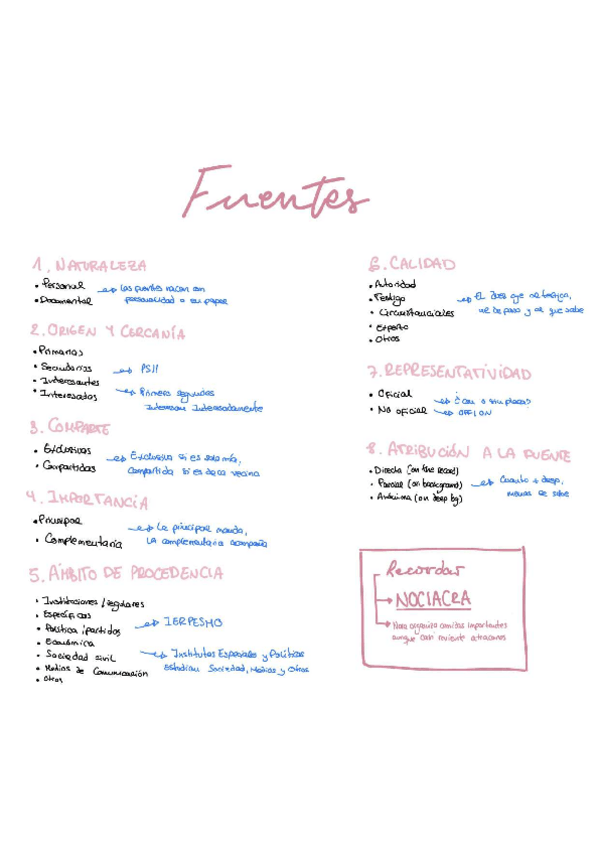 Fuentes
1. NATURALEZA
• Personal → las fuentes nacen con
• Documental personalidad o su papel
2. ORIGEN Y CERCANÍA
• Primarias
• Secundarias → PSII
• Interesantes
• Interesadas → Primera segundas
interesan interesadamente
3. COMPARTE
• Exclusivas → Exclusiva si es solo mía,
• Compartidas compartida si es de la vecina
4. IMPORTANCIA
• Principal → La principal manda,
• Complementaria LA complementaria acompaña
5. ÁMBITO DE PROCEDENCIA
• Instituciones / regulares
• Específicas
• Política / partidos → IERPESMO
• Económica
• Sociedad civil → Institutos Especiales y Políticos
• Medios de Comunicación estudian Sociedad, Medios y Otros
• Otros
6. CALIDAD
• Autoridad
• Testigo → EL
• Circunstanciales
• Experto
• Otros
7. REPRESENTATIVIDAD
• Oficial → ¿Con o sin placa?
• No oficial → OFF/ON
8. ATRIBUCIÓN A LA FUENTE
• Directa (on the record)
• Parcial (on background) → Cuanto + deep,
• Anónima (on deep bg) menos se sabe
Recordar
→ NOCIACRA
→ Nora organiza comidas importantes
aunque casi reviente atracones